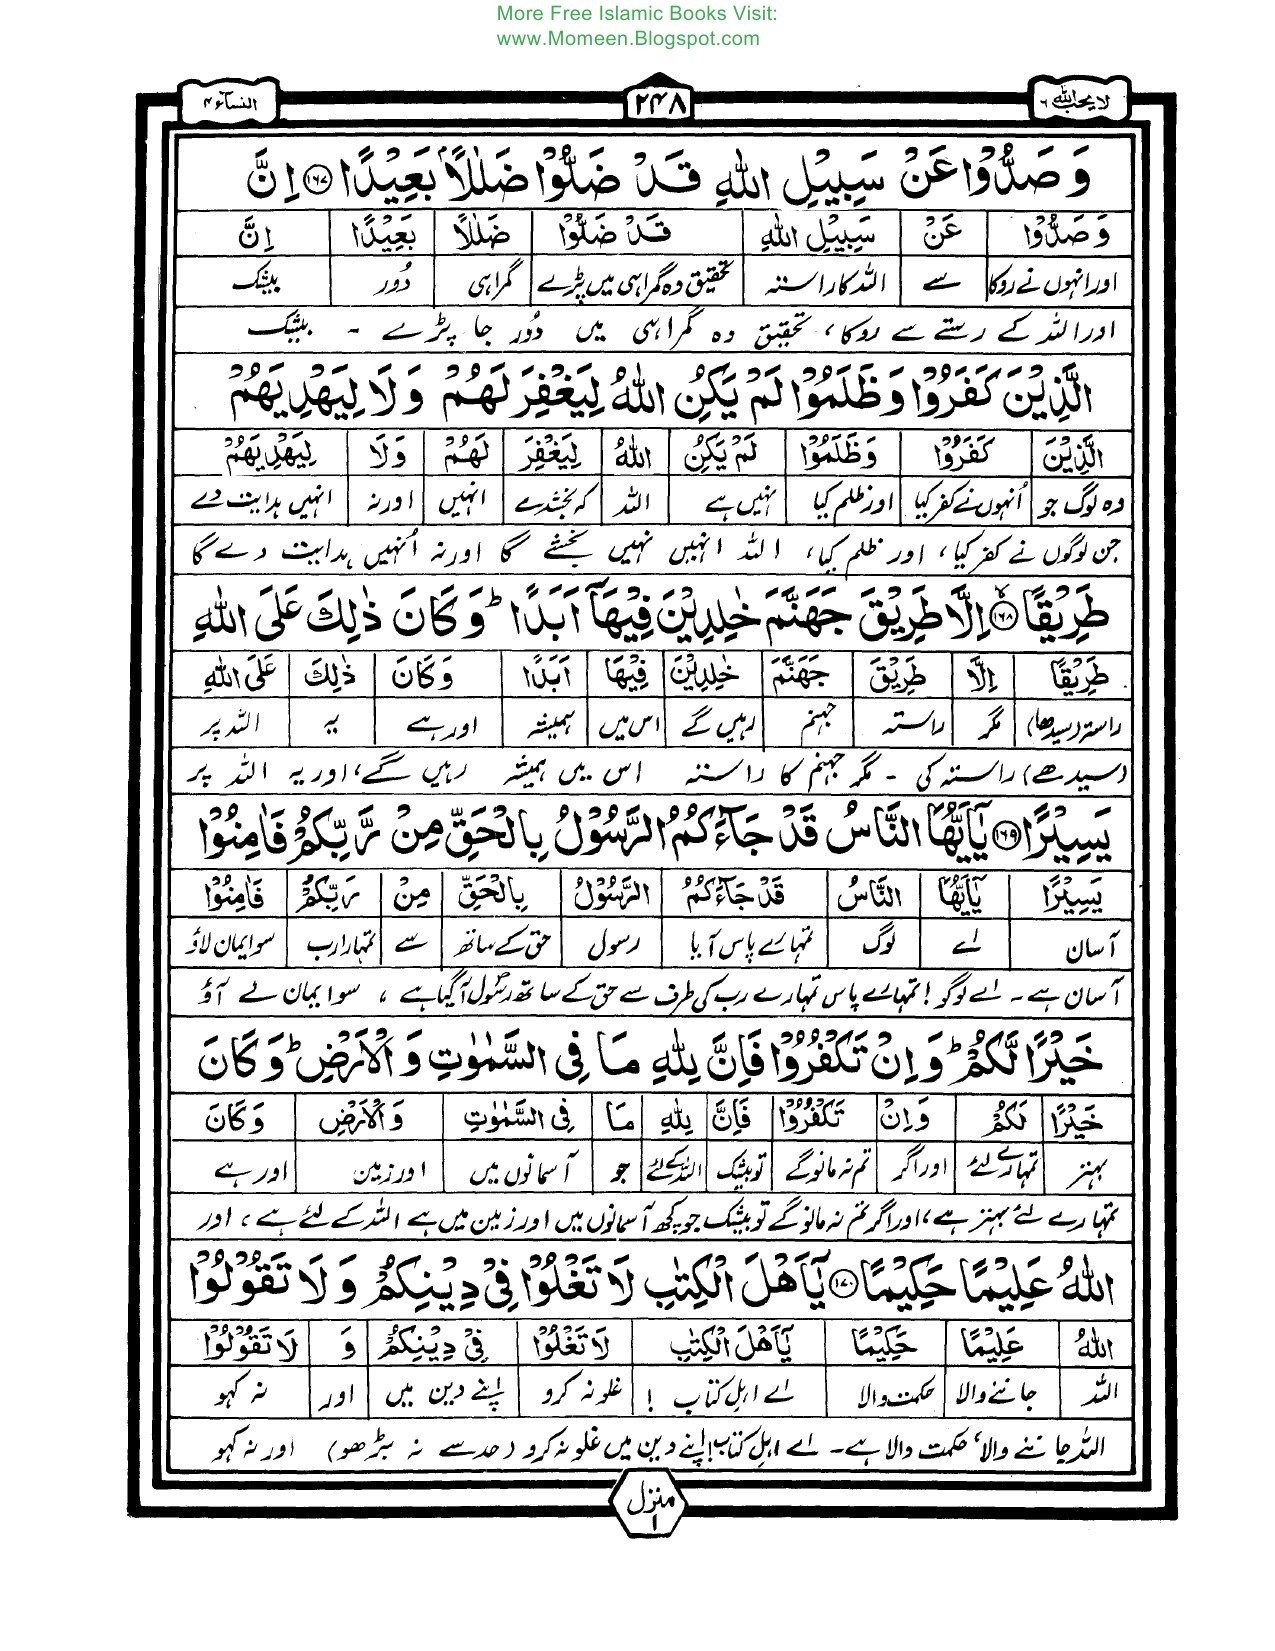 More Free Islamic Books Visit:
www.Momeen.Blogspot.com
لا يحب الله ٦
٢٤٨
النسآء ٤
وَ صَدُّوْا عَنْ سَبِيْلِ اللهِ قَدْ ضَلُّوْا ضَلٰلًاۢ بَعِيْدًا ﴿١٦٧﴾ اِنَّ
وَصَدُّوْا عَنْ سَبِيْلِ اللهِ قَدْ ضَلُّوْا ضَلٰلًا بَعِيْدًا اِنَّ
اور انہوں نے روکا سے اللہ کا راستہ تحقیق وہ گمراہی میں پڑے گمراہی دُور بیشک
اور اللہ کے رستے سے روکا، تحقیق وہ گمراہی میں دُور جا پڑے ۔ بیشک
الَّذِيْنَ كَفَرُوْا وَظَلَمُوْا لَمْ يَكُنِ اللهُ لِيَغْفِرَ لَهُمْ وَلَا لِيَهْدِيَهُمْ
الَّذِيْنَ كَفَرُوْا وَظَلَمُوْا لَمْ يَكُنِ اللهُ لِيَغْفِرَ لَهُمْ وَلَا لِيَهْدِيَهُمْ
وہ لوگ جو اُنہوں نے کفر کیا اور ظلم کیا نہیں ہے اللہ کہ بخشدے انہیں اور نہ انہیں ہدایت دے
جن لوگوں نے کفر کیا، اور ظلم کیا، اللہ انہیں نہیں بخشے گا اور نہ اُنہیں ہدایت دے گا
طَرِيْقًا ﴿١٦٨﴾ اِلَّا طَرِيْقَ جَهَنَّمَ خٰلِدِيْنَ فِيْهَآ اَبَدًا ؕ وَكَانَ ذٰلِكَ عَلَى اللهِ
طَرِيْقًا اِلَّا طَرِيْقَ جَهَنَّمَ خٰلِدِيْنَ فِيْهَا اَبَدًا وَكَانَ ذٰلِكَ عَلَى اللهِ
راستہ (سیدھا) مگر راستہ جہنم رہیں گے اس میں ہمیشہ اور ہے یہ اللہ پر
(سیدھے) راستہ کی ۔ مگر جہنم کا راستہ اس میں ہمیشہ رہیں گے، اور یہ اللہ پر
يَسِيْرًا ﴿١٦٩﴾ يٰٓاَيُّهَا النَّاسُ قَدْ جَآءَكُمُ الرَّسُوْلُ بِالْحَقِّ مِنْ رَّبِّكُمْ فَاٰمِنُوْا
يَسِيْرًا يٰٓاَيُّهَا النَّاسُ قَدْ جَآءَكُمُ الرَّسُوْلُ بِالْحَقِّ مِنْ رَبِّكُمْ فَاٰمِنُوْا
آسان اے لوگ تمہارے پاس آیا رسول حق کے ساتھ سے تمہارا رب سو ایمان لاؤ
آسان ہے ۔ اے لوگو! تمہارے پاس تمہارے رب کی طرف سے حق کے ساتھ رسولؐ آگیا ہے ، سو ایمان لے آؤ
خَيْرًا لَّكُمْ ؕ وَاِنْ تَكْفُرُوْا فَاِنَّ لِلهِ مَا فِى السَّمٰوٰتِ وَالْاَرْضِ ؕ وَكَانَ
خَيْرًا لَكُمْ وَاِنْ تَكْفُرُوْا فَاِنَّ لِلهِ مَا فِى السَّمٰوٰتِ وَالْاَرْضِ وَكَانَ
بہتر تمہارے لئے اور اگر تم نہ مانو گے تو بیشک اللہ کے لئے جو آسمانوں میں اور زمین اور ہے
تمہارے لئے بہتر ہے، اور اگر تم نہ مانو گے تو بیشک جو کچھ آسمانوں میں اور زمین میں ہے اللہ کے لئے ہے، اور
اللهُ عَلِيْمًا حَكِيْمًا ﴿١٧٠﴾ يٰٓاَهْلَ الْكِتٰبِ لَا تَغْلُوْا فِىْ دِيْنِكُمْ وَلَا تَقُوْلُوْا
اللهُ عَلِيْمًا حَكِيْمًا يٰٓاَهْلَ الْكِتٰبِ لَا تَغْلُوْا فِىْ دِيْنِكُمْ وَ لَا تَقُوْلُوْا
اللہ جاننے والا حکمت والا اے اہل کتاب ! غلو نہ کرو اپنے دین میں اور نہ کہو
اللہ جاننے والا، حکمت والا ہے ۔ اے اہل کتاب! اپنے دین میں غلو نہ کرو (حد سے نہ بڑھو) اور نہ کہو
منزل
١